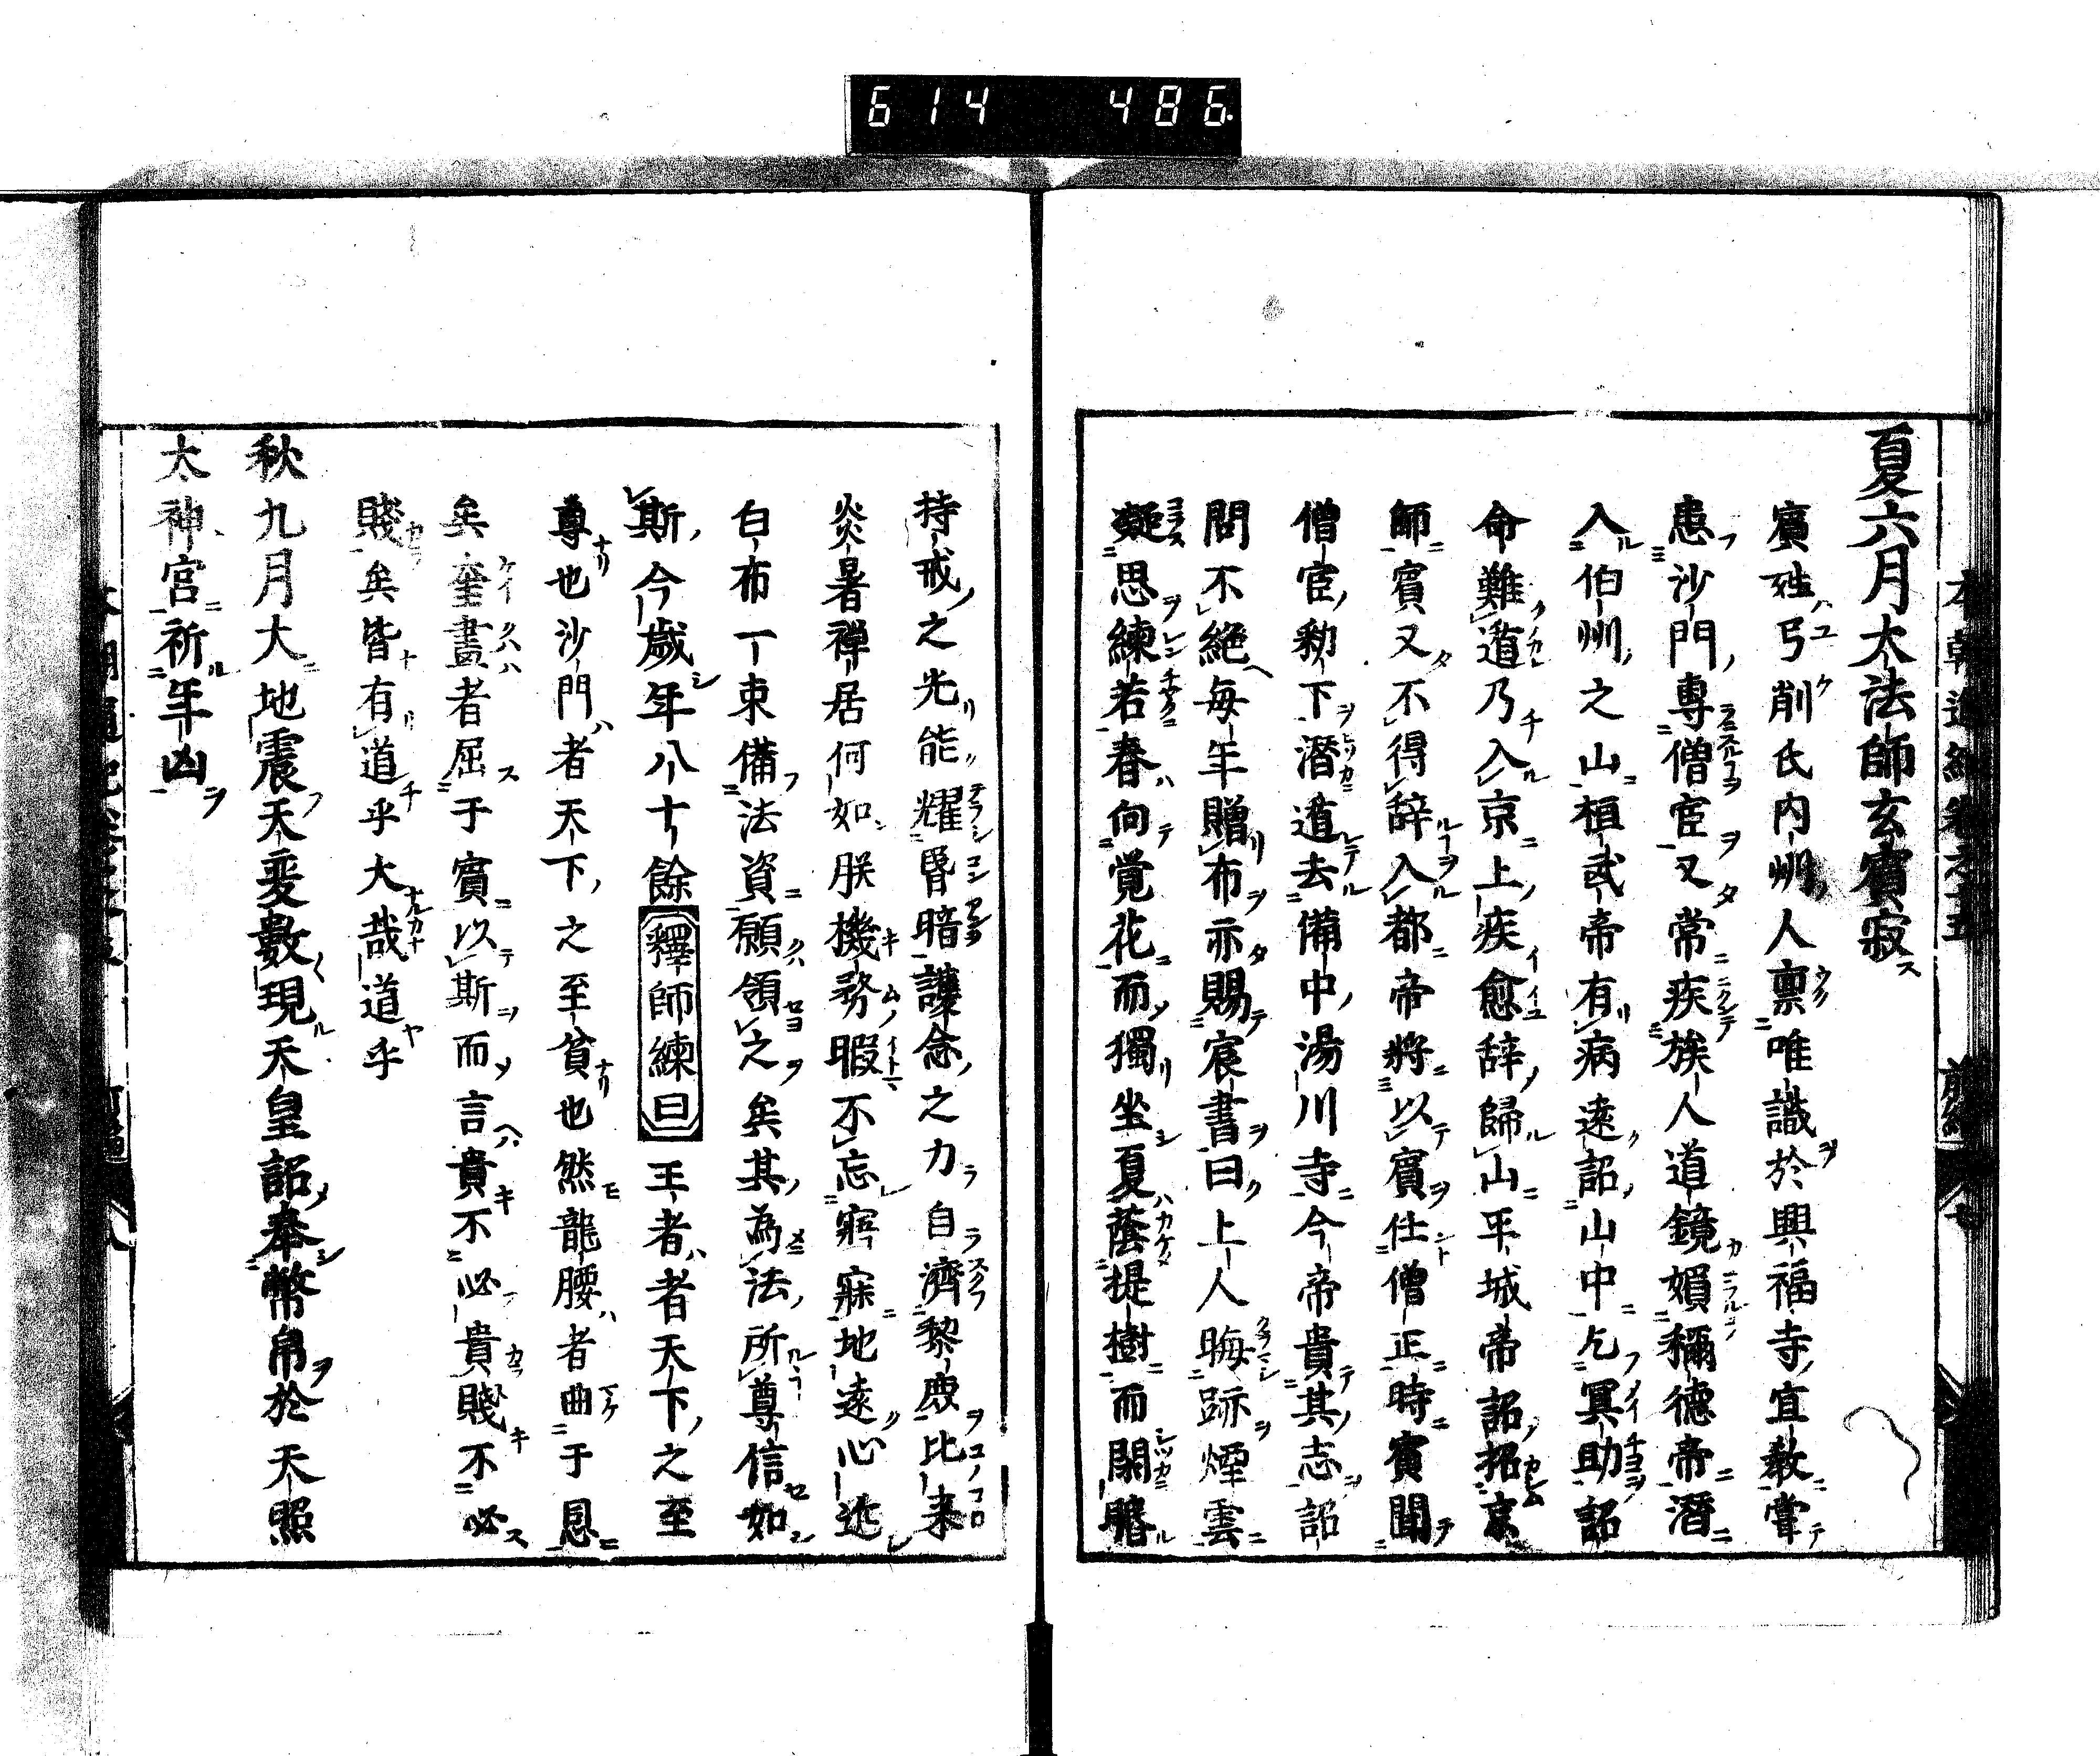 614 486
夏六月大法師玄賓寂
賓姓弓削氏内州人禀唯識於興福寺宣教嘗
患沙門專僧宦又常疾族人道鏡媚稱德帝潛
入伯州之山桓武帝有病遠詔山中乞冥助詔
命難逭乃入京上疾愈辞歸山平城帝詔招京
師賓又不得辞入都帝將以賓仕僧正時賓聞
僧宦勅下潛遁去備中湯川寺今帝貴其志詔
問不絶每年贈布亦賜宸書曰上人晦跡煙雲
凝思練若春向覚花而獨坐夏蔭提樹而閑瞻
持戒之光能耀昏暗護念之力自濟黎庶比来
炎暑禅居何如朕機務暇不忘寤寐地遠心迩
白布一束備法資願領之矣其為法所尊信如
斯今歳年八十餘 釋師練曰 王者者天下之至
尊也沙門者天下之至貧也然龍腰者曲于恩
矣奎畫者屈于賓以斯而言貴不必貴賤不必
賤矣皆有道乎大哉道乎
秋九月大地震天変數現天皇詔奉幣帛於天照
太神宮祈年凶